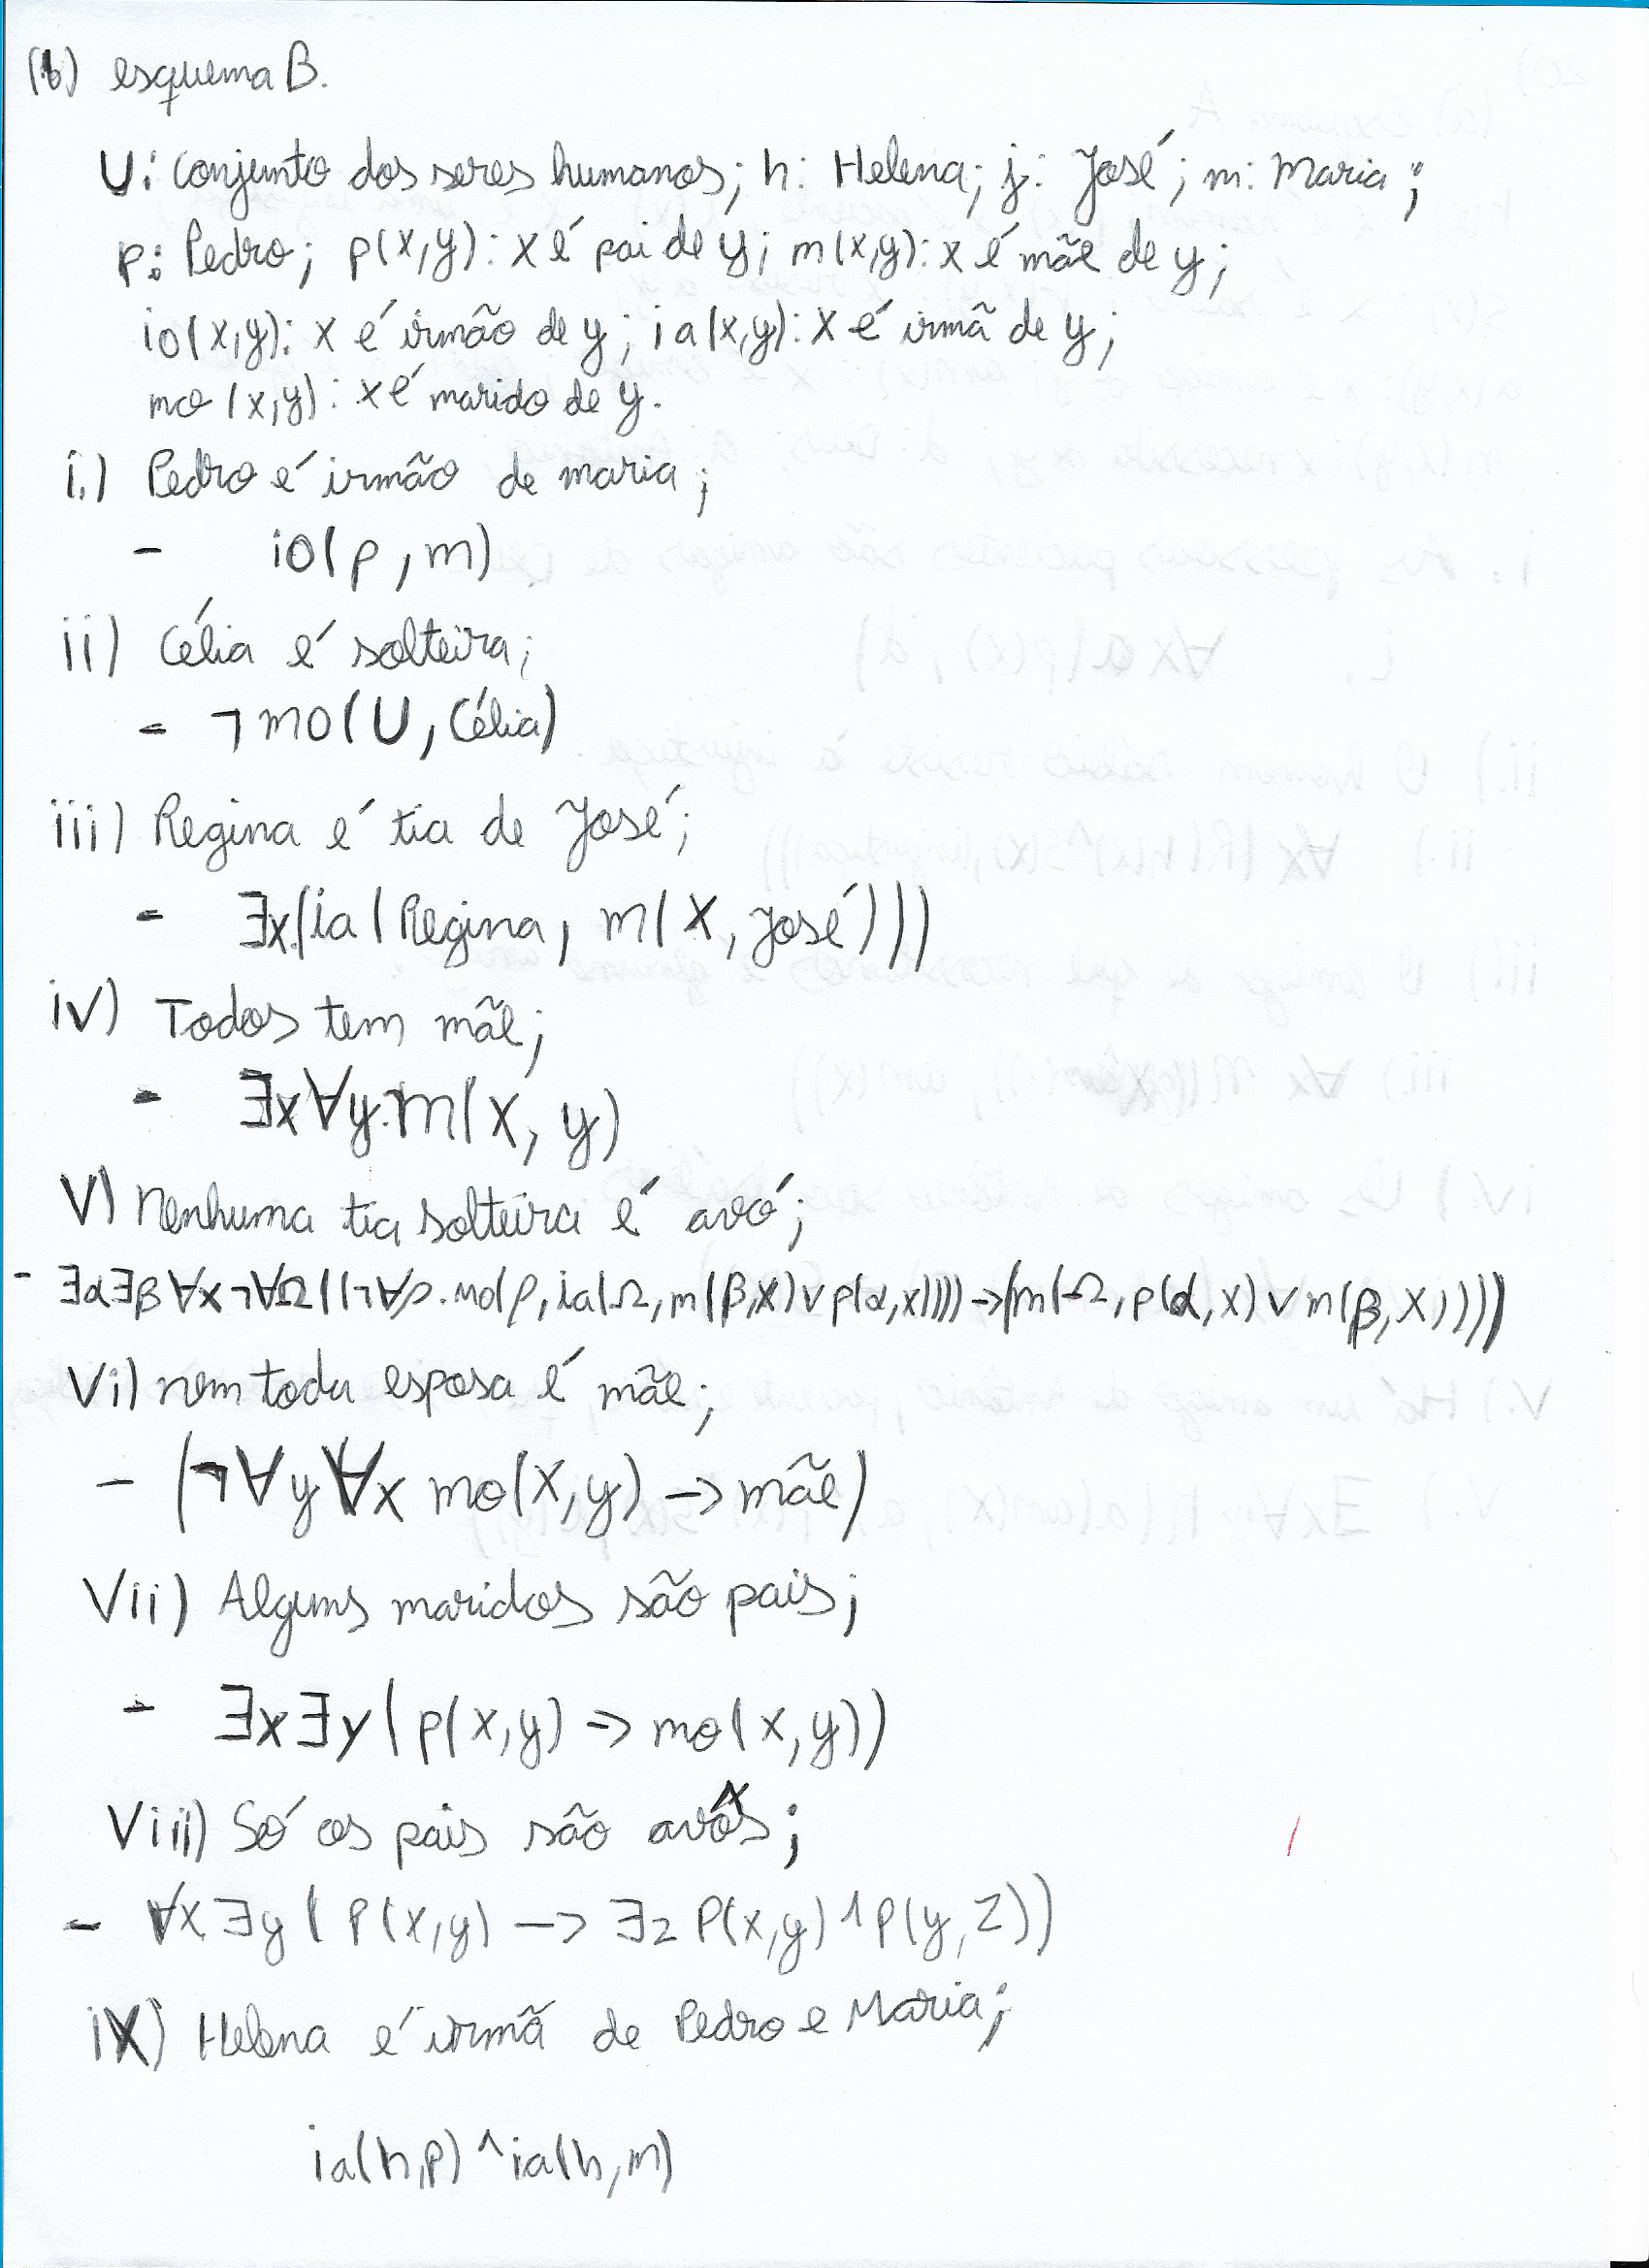 (b) esquema B.
U: conjunto dos seres humanos; h: Helena; j: José; m: Maria;
p: Pedro; p(x,y): x é pai de y; m(x,y): x é mãe de y;
io(x,y): x é irmão de y; ia(x,y): x é irmã de y;
mo(x,y): x é marido de y.
i.) Pedro é irmão de maria;
- io(p,m)
ii) Célia é solteira;
- ¬mo(U, Célia)
iii) Regina é tia de José;
- ∃x(ia(Regina, m(x, José)))
iv) Todos tem mãe;
- ∃x∀y.m(x, y)
V) nenhuma tia solteira é avó;
- ∃α∃β∀x¬∀Ω((¬∀ρ.mo(ρ,ia(Ω,m(β,x)∨p(α,x))))→(m(Ω,p(α,x)∨m(β,x))))
Vi) nem toda esposa é mãe;
- (¬∀y∀x mo(x,y) → mãe)
Vii) Alguns maridos são pais;
- ∃x∃y(p(x,y) → mo(x,y))
Viii) Só os pais são avôs;
- ∀x∃y(P(x,y) → ∃z P(x,y)^p(y,z))
iX) Helena é irmã de Pedro e Maria;
ia(h,p)^ia(h,m)